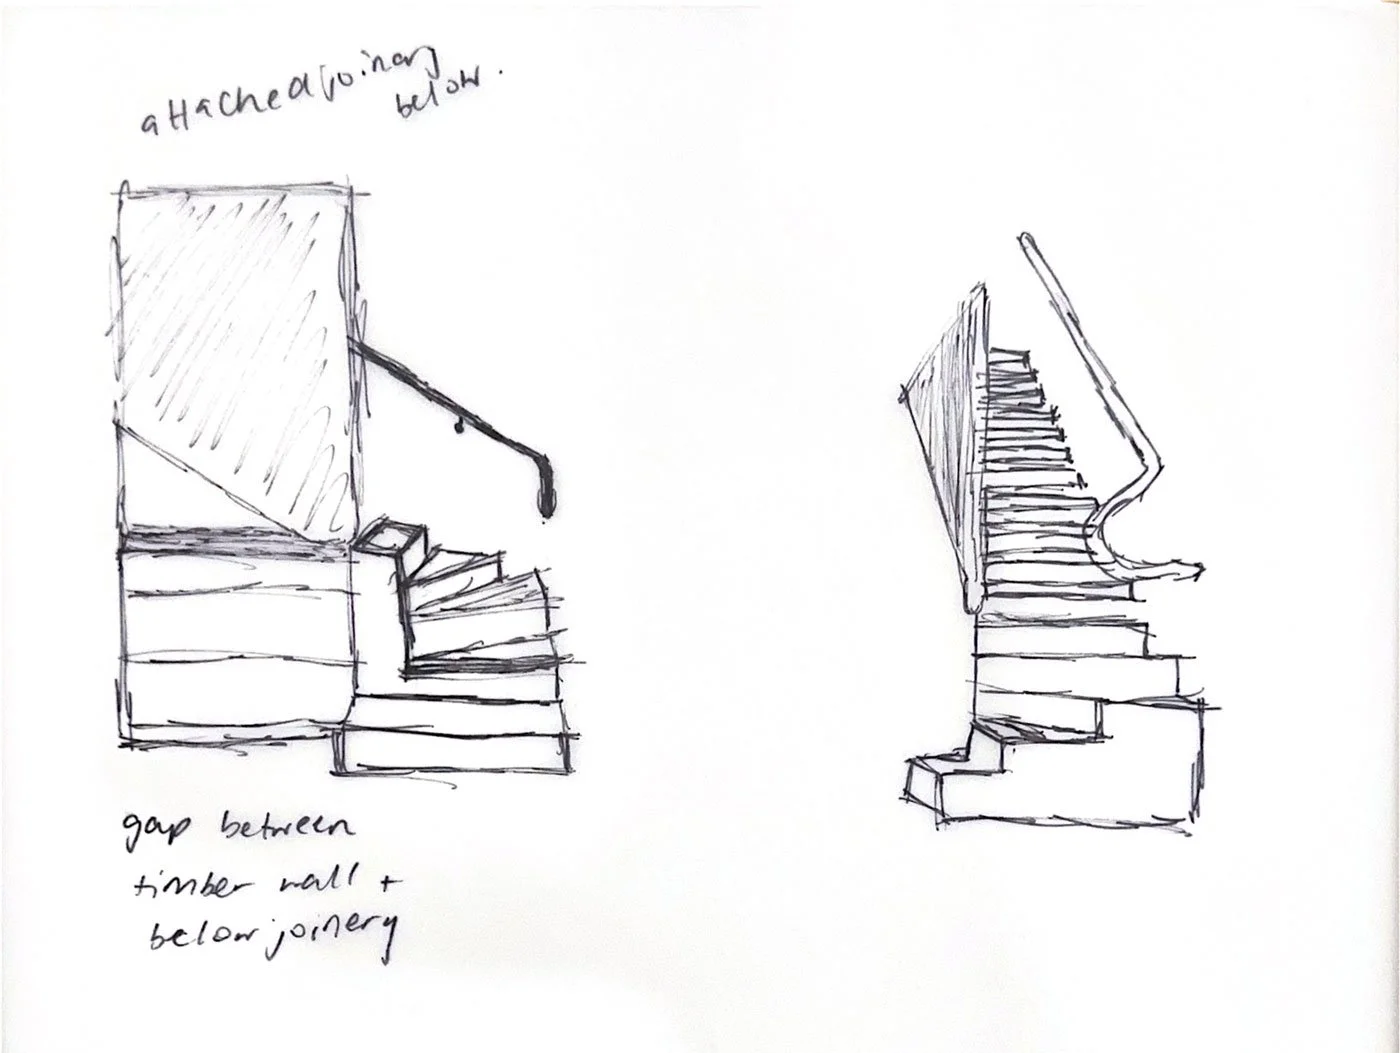 attached joinery
below.
gap between
timber wall +
below joinery